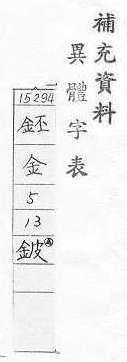 補充資料
異體字表
15294
鉟
金
5
13
鈹